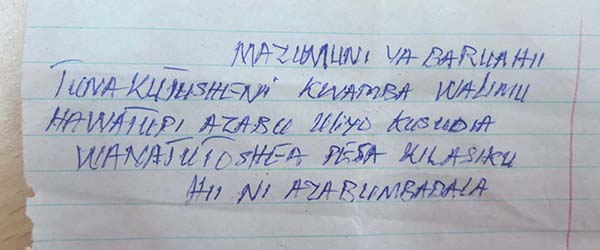 MAZUMUNI YA BARUA HII
TUNAKUJUSHENI KWAMBA WALIMU
HAWATUPI AZABU ULIYO KUSUDIA
WANATUTOSHEA PESA KILASIKU
HII NI AZABUMBADALA